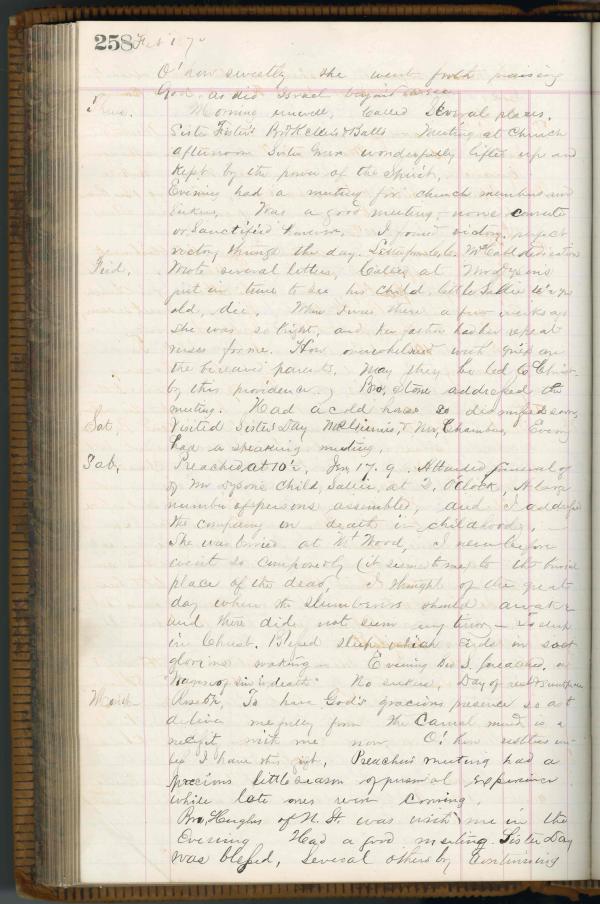 258 Feb 1 7
O' how sweetly she went forth praising
God, as did Israel
Thur. Morning unwell, Called several places.
Sister Foster's Bro Keller's & Balls - Meeting at Church
afternoon Sister Green wonderfully lifted up and
kept by the power of the Spirit.
Evening had a meeting for church members and
Seekers. Was a good meeting, none converted
or Sanctified however. I found victory, perfect
victory through the day. McCabe dedication
Frid. Wrote several letters, Called at Mr Dysons
just in time to see his child little Sallie
old, die. When I was there a few weeks ago
she was so bright, and her father had her repeat
verses for me. How overwhelmed with grief are
the bereaved parents. May they be led to Christ
by this providence. Bro. Stone addressed the
meeting. Had a cold house so dismissed soon.
Sat. Visited Sister's Day McGinnis, & Mrs. Chambers, Evening
had a speaking meeting.
Sab. Preached at 10½, Jer. 17. 9. Attended funeral of
of Mr Dysons Child, Sallie, at 2. O'Clock, A large
number of persons assembled, and I addressed
the company on death in childhood.
She was buried at Mt Wood, I never before
went so composedly (it seemed to me) to the burial
place of the dead, I thought of the great
day when the slumberers should awake
and there did not seem any terror - to sleep
in Christ. Blessed sleep which ends in such
glorious waking. Evening Bro S. preached, on
"Wages of sin is death" No seekers, Day of rest & sunshine
Mond. Rose 6, To have God's gracious presence so as to
deliver me fully from the carnal mind is a
necessity with me now. O! how restless
I have this gift. Preachers meeting had a
precious little season of personal experience
while late ones were coming.
Bro. Hughes of N. St. was with me in the
Evening Had a good meeting. Sister Day
was blessed, several others by continuing